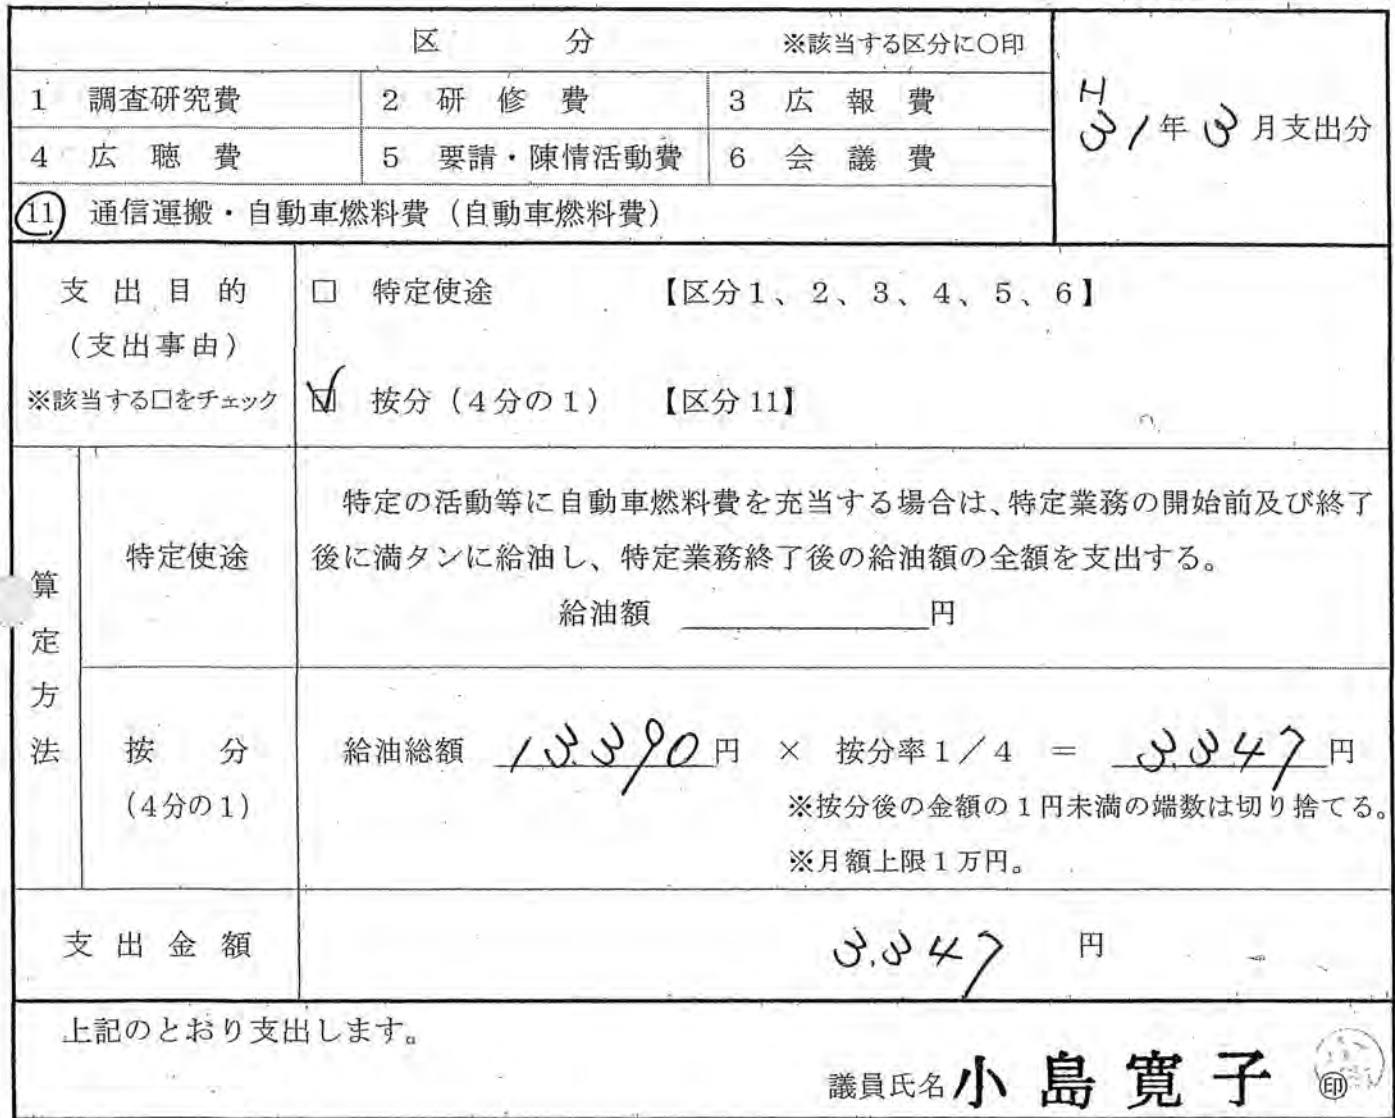 区 分 ※該当する区分に○印
1 調査研究費 2 研修費 3 広報費
H
31年3月支出分
4 広聴費 5 要請・陳情活動費 6 会議費
11 通信運搬・自動車燃料費（自動車燃料費）
支出目的
（支出事由）
※該当する□をチェック
□ 特定使途 【区分1、2、3、4、5、6】
☑ 按分（4分の1） 【区分11】
算定方法
特定使途
特定の活動等に自動車燃料費を充当する場合は、特定業務の開始前及び終了
後に満タンに給油し、特定業務終了後の給油額の全額を支出する。
給油額 円
按分
（4分の1）
給油総額 13.390円 × 按分率1／4 ＝ 3.347円
※按分後の金額の1円未満の端数は切り捨てる。
※月額上限1万円。
支出金額 3.347 円
上記のとおり支出します。
議員氏名 小島寛子 ㊞